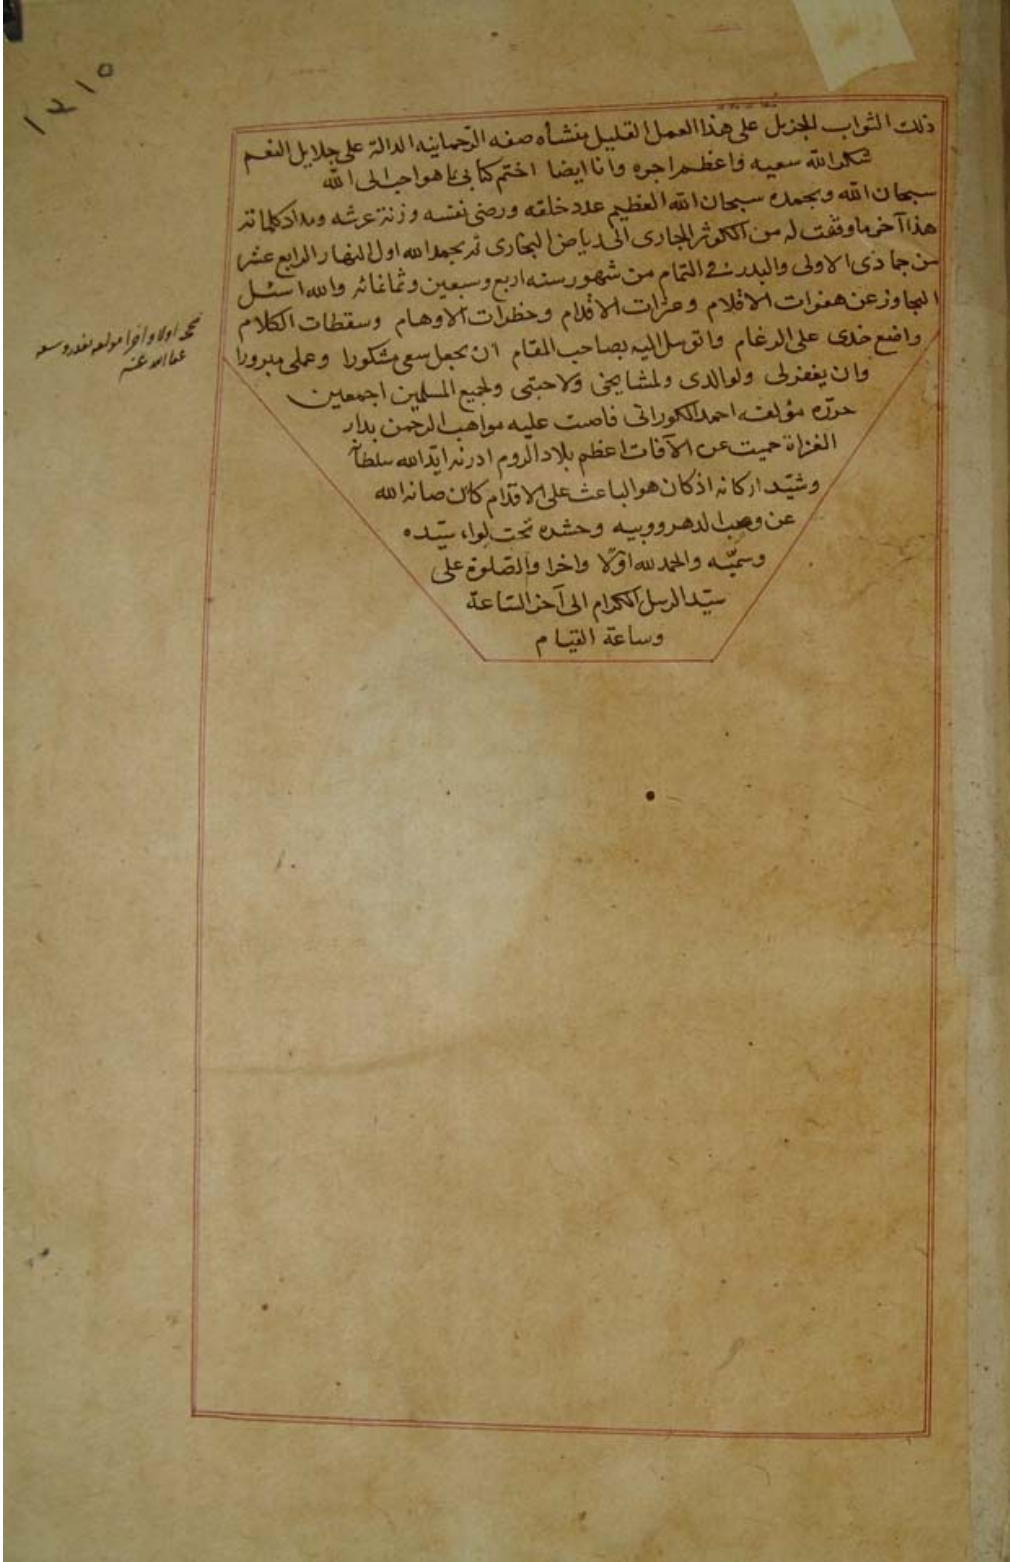 ١٢١٥
ذلك الثواب الجزيل على هذا العمل القليل منشأه صفه الرحمانيه الدالة على جلايل النعم
شكر الله سعيه واعظم اجره وانا ايضا اختم كتابى بما هو احب الى الله
سبحان الله وبحمده سبحان الله العظيم عدد خلقه ورضى نفسه وزنة عرشه ومداد كلماته
هذا آخر ما وقفت له من الكوثر الجارى الى رياض البخارى تم بحمد الله اول النهار الرابع عشر
من جماذى الاولى والبدر فى التمام من شهور سنه اربع وسبعين وثمانمائه والله اسئل
التجاوز عن هفوات الاقلام وعثرات الاقدام وخطرات الاوهام وسقطات الكلام
واضع خدى على الرغام واتوسل اليه بصاحب المقام ان يجعل سعى مشكورا وعملى مبرورا
وان يغفر لى ولوالدى ولمشايخى ولاحبتى ولجميع المسلمين اجمعين
حرره مؤلفه احمد الكورانى فاضت عليه مواهب الرحمن بدار
الغزاة حميت عن الآفات اعظم بلاد الروم ادرنه ايد الله سلطانه
وشيد اركانه اذ كان هو الباعث على الاقدام كان صانه الله
عن الدهر وريبه وحشره تحت لواء سيده
وسميه والحمد لله اولا واخرا والصلوة على
سيد الرسل الكرام الى آخر الساعة
وساعة القيام
اولا واخرا
عفا الله عنه